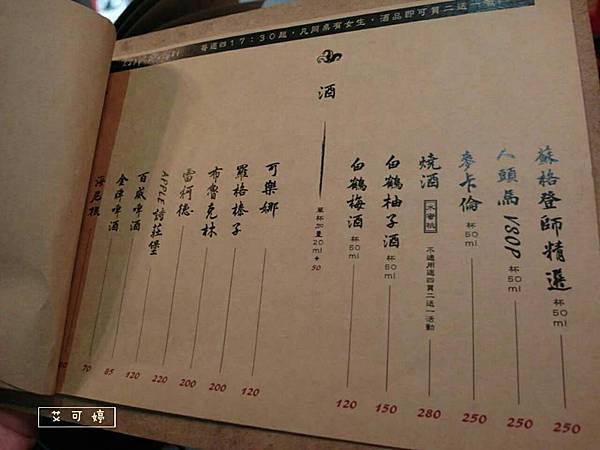 每週四17:30起,凡同桌有女生,酒品即可買二送一
酒
蘇格登師精選 杯50ml 250
人頭馬VSOP 杯50ml 250
麥卡倫 杯50ml 250
燒酒 水蜜桃 不適用週四買二送一活動 280
白鶴柚子酒 杯50ml 150
白鶴梅酒 杯50ml 120
單杯加量20ml+50
可樂娜 120
羅格榛子 200
布魯克林 200
雷柯德 200
APPLE詩莊堡 220
百威啤酒 120
金牌啤酒 85
海尼根 70
艾可婷